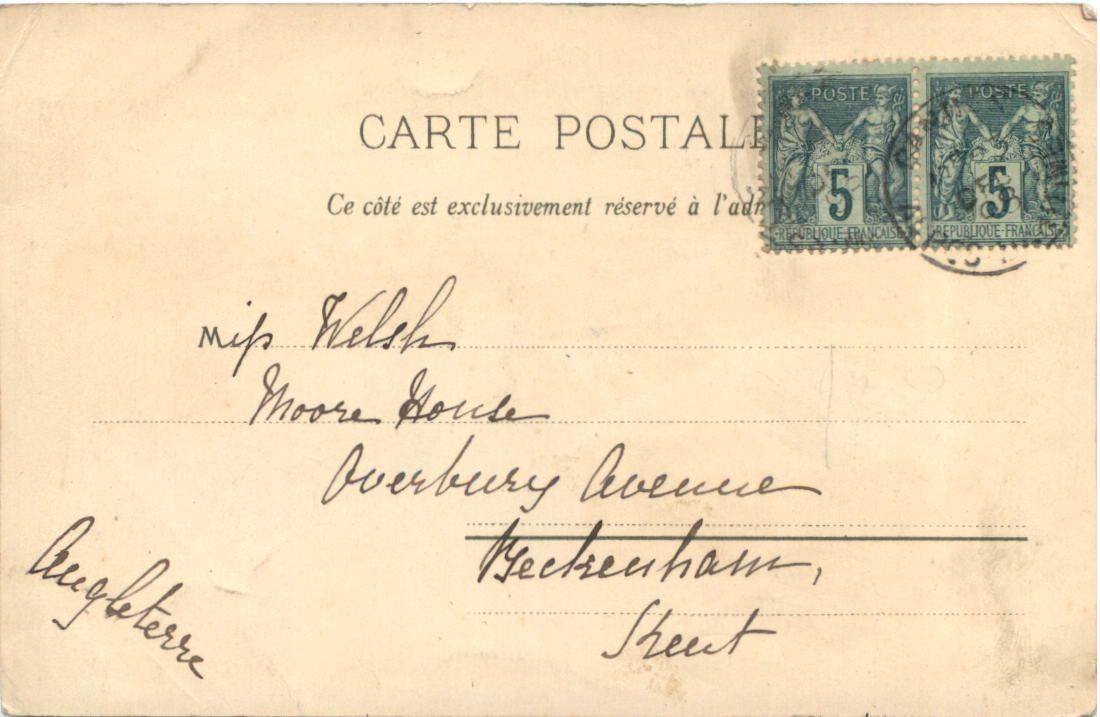 CARTE POSTALE
POSTE POSTE
5 5
REPUBLIQUE-FRANCAISE REPUBLIQUE-FRANCAISE
Ce côté est exclusivement réservé à
Miss Welsh
Moore House
Overbury Avenue
Beckenham,
Kent
Angleterre